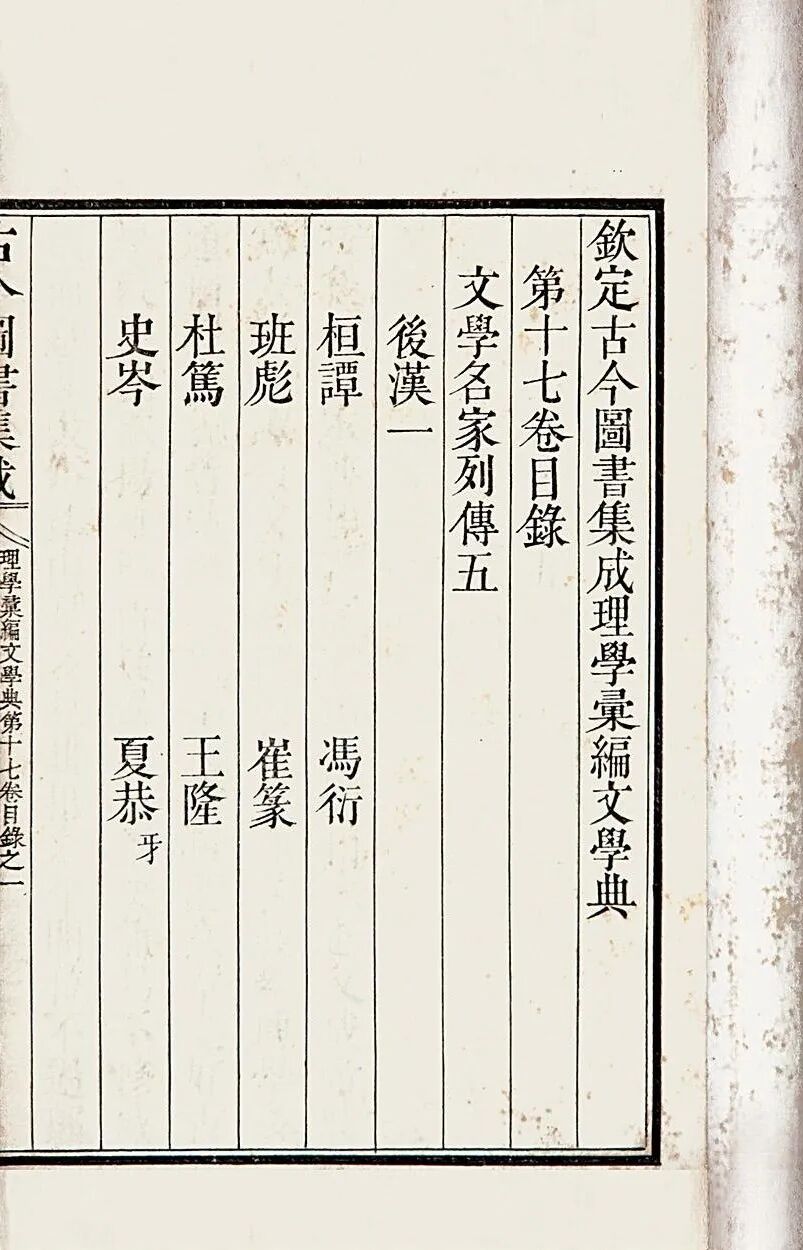 欽定古今圖書集成理學彙編文學典
第十七卷目錄
文學名家列傳五
後漢一
桓譚 馮衍
班彪 崔篆
杜篤 王隆
史岑 夏恭 牙
古今圖書集成 理學彙編文學典第十七卷目錄之一